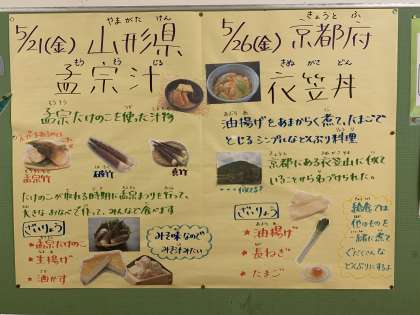 5/21(金) 山形県
やまがた けん
孟宗汁
もう そう じる
孟宗たけのこを使った汁物
孟宗竹
破竹
真竹
たけのこが取れる時期に孟宗まつりを行って、
大きなおなべで作って、みんなで食べます
ざいりょう
★孟宗たけのこ
★生揚げ
★酒かす
みそ味なので
みそ汁みたい
5/26(金) 京都府
きょうと ふ
衣笠丼
きぬ がさ どん
油揚げをあまからく煮て、たまごで
とじるシンプルなどんぶり料理
京都にある衣笠山に似て
いることから名づけられた。
ざいりょう
★油揚げ
★長ねぎ
★たまご
給食では
他の
一緒に煮て
ぐだくさんな
どんぶりにするよ